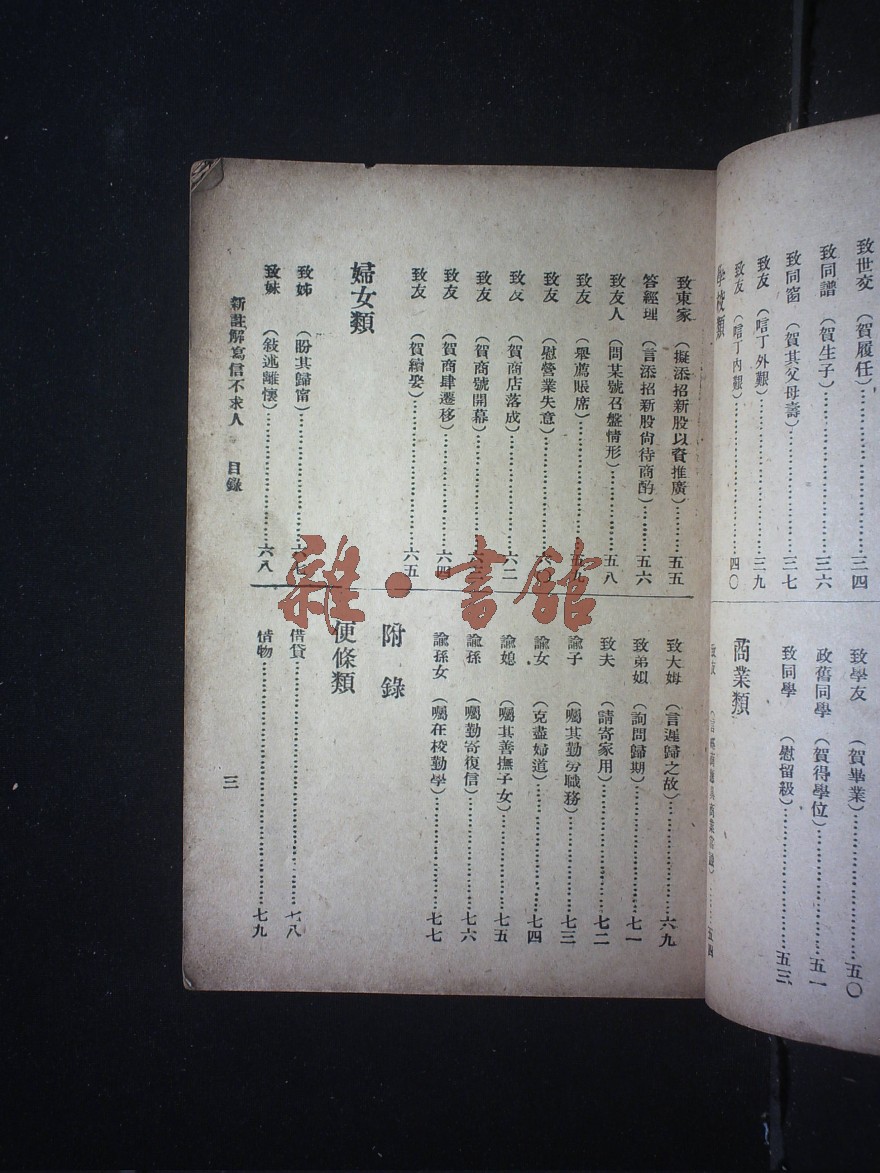 致世交（賀履任）…………三四
致同譜（賀生子）…………三六
致同窗（賀其父母壽）…………三七
致友（唁丁外艱）…………三九
致友（唁丁內艱）…………四〇
學校類
致學友（賀畢業）…………五〇
政舊同學（賀得學位）…………五一
致同學（慰留級）…………五三
商業類
致友
五四
致東家（擬添招新股以資推廣）…………五五
答經理（言添招新股尙待商酌）…………五六
致友人（問某號召盤情形）…………五八
致友（舉薦賬席）…………五九
致友（慰營業失意）…………六〇
致友（賀商店落成）…………六二
致友（賀商號開幕）…………六三
致友（賀商肆遷移）…………六四
致友（賀續娶）…………六五
婦女類
致姊（盼其歸甯）…………六七
致妹（敍述離懷）…………六八
致大姆（言遲歸之故）…………六九
致弟姒（詢問歸期）…………七一
致夫（請寄家用）…………七二
諭子（囑其勤勞職務）…………七三
諭女（克盡婦道）…………七四
諭媳（囑其善撫子女）…………七五
諭孫（囑勤寄復信）…………七六
諭孫女（囑在校勤學）…………七七
附錄
便條類
借貸…………七八
借物…………七九
新註解寫信不求人 目錄
三
雜·書館